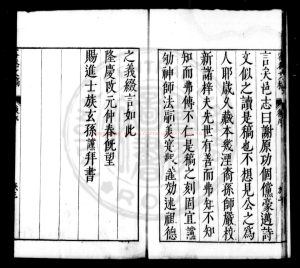 言矣邑志曰謝原功個儻豪邁詩
文似之讀是稿也不想見公之為
人耶歲久藏本幾湮裔孫師嚴校
新諸梓夫先世有善而弗知不知
知而弗傳不仁是稿之刻固宜謹
劬神師法
效述祖德
之義綴言如此
隆慶改元仲春既望
賜進士族玄孫謹拜書